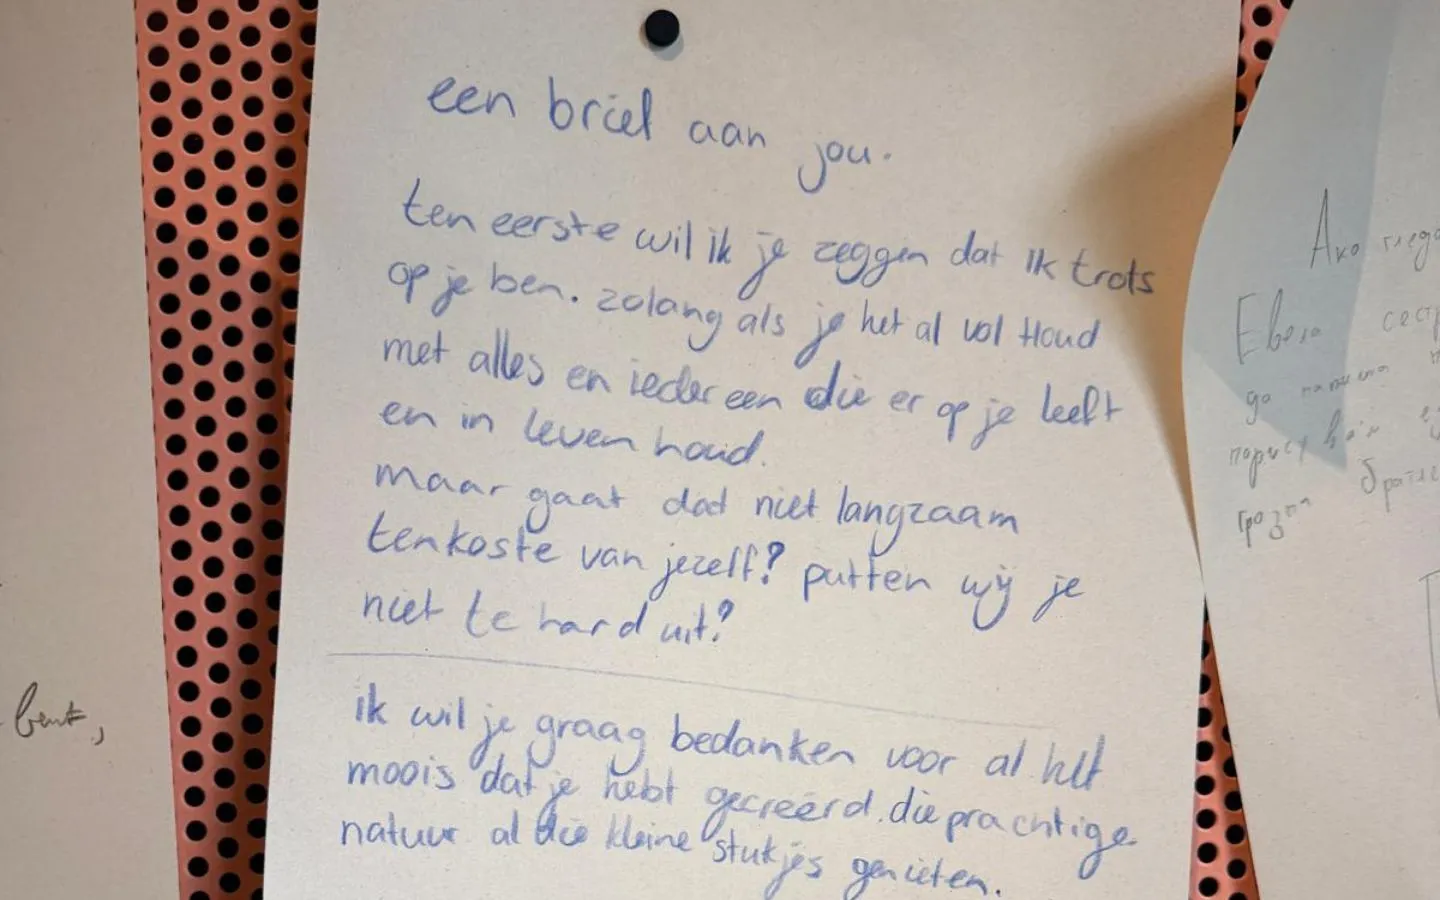 een brief aan jou.
ten eerste wil ik je zeggen dat ik trots
op je ben. zolang als je het al vol Houd
met alles en iedereen die er op je leeft
en in leven houd.
maar gaat dat niet langzaam
tenkoste van jezelf? putten wij je
niet te hard uit?
ik wil je graag bedanken voor al het
moois dat je hebt gecreëerd. die prachtige
natuur al die kleine stukjes genieten.
bent,
Ако
да